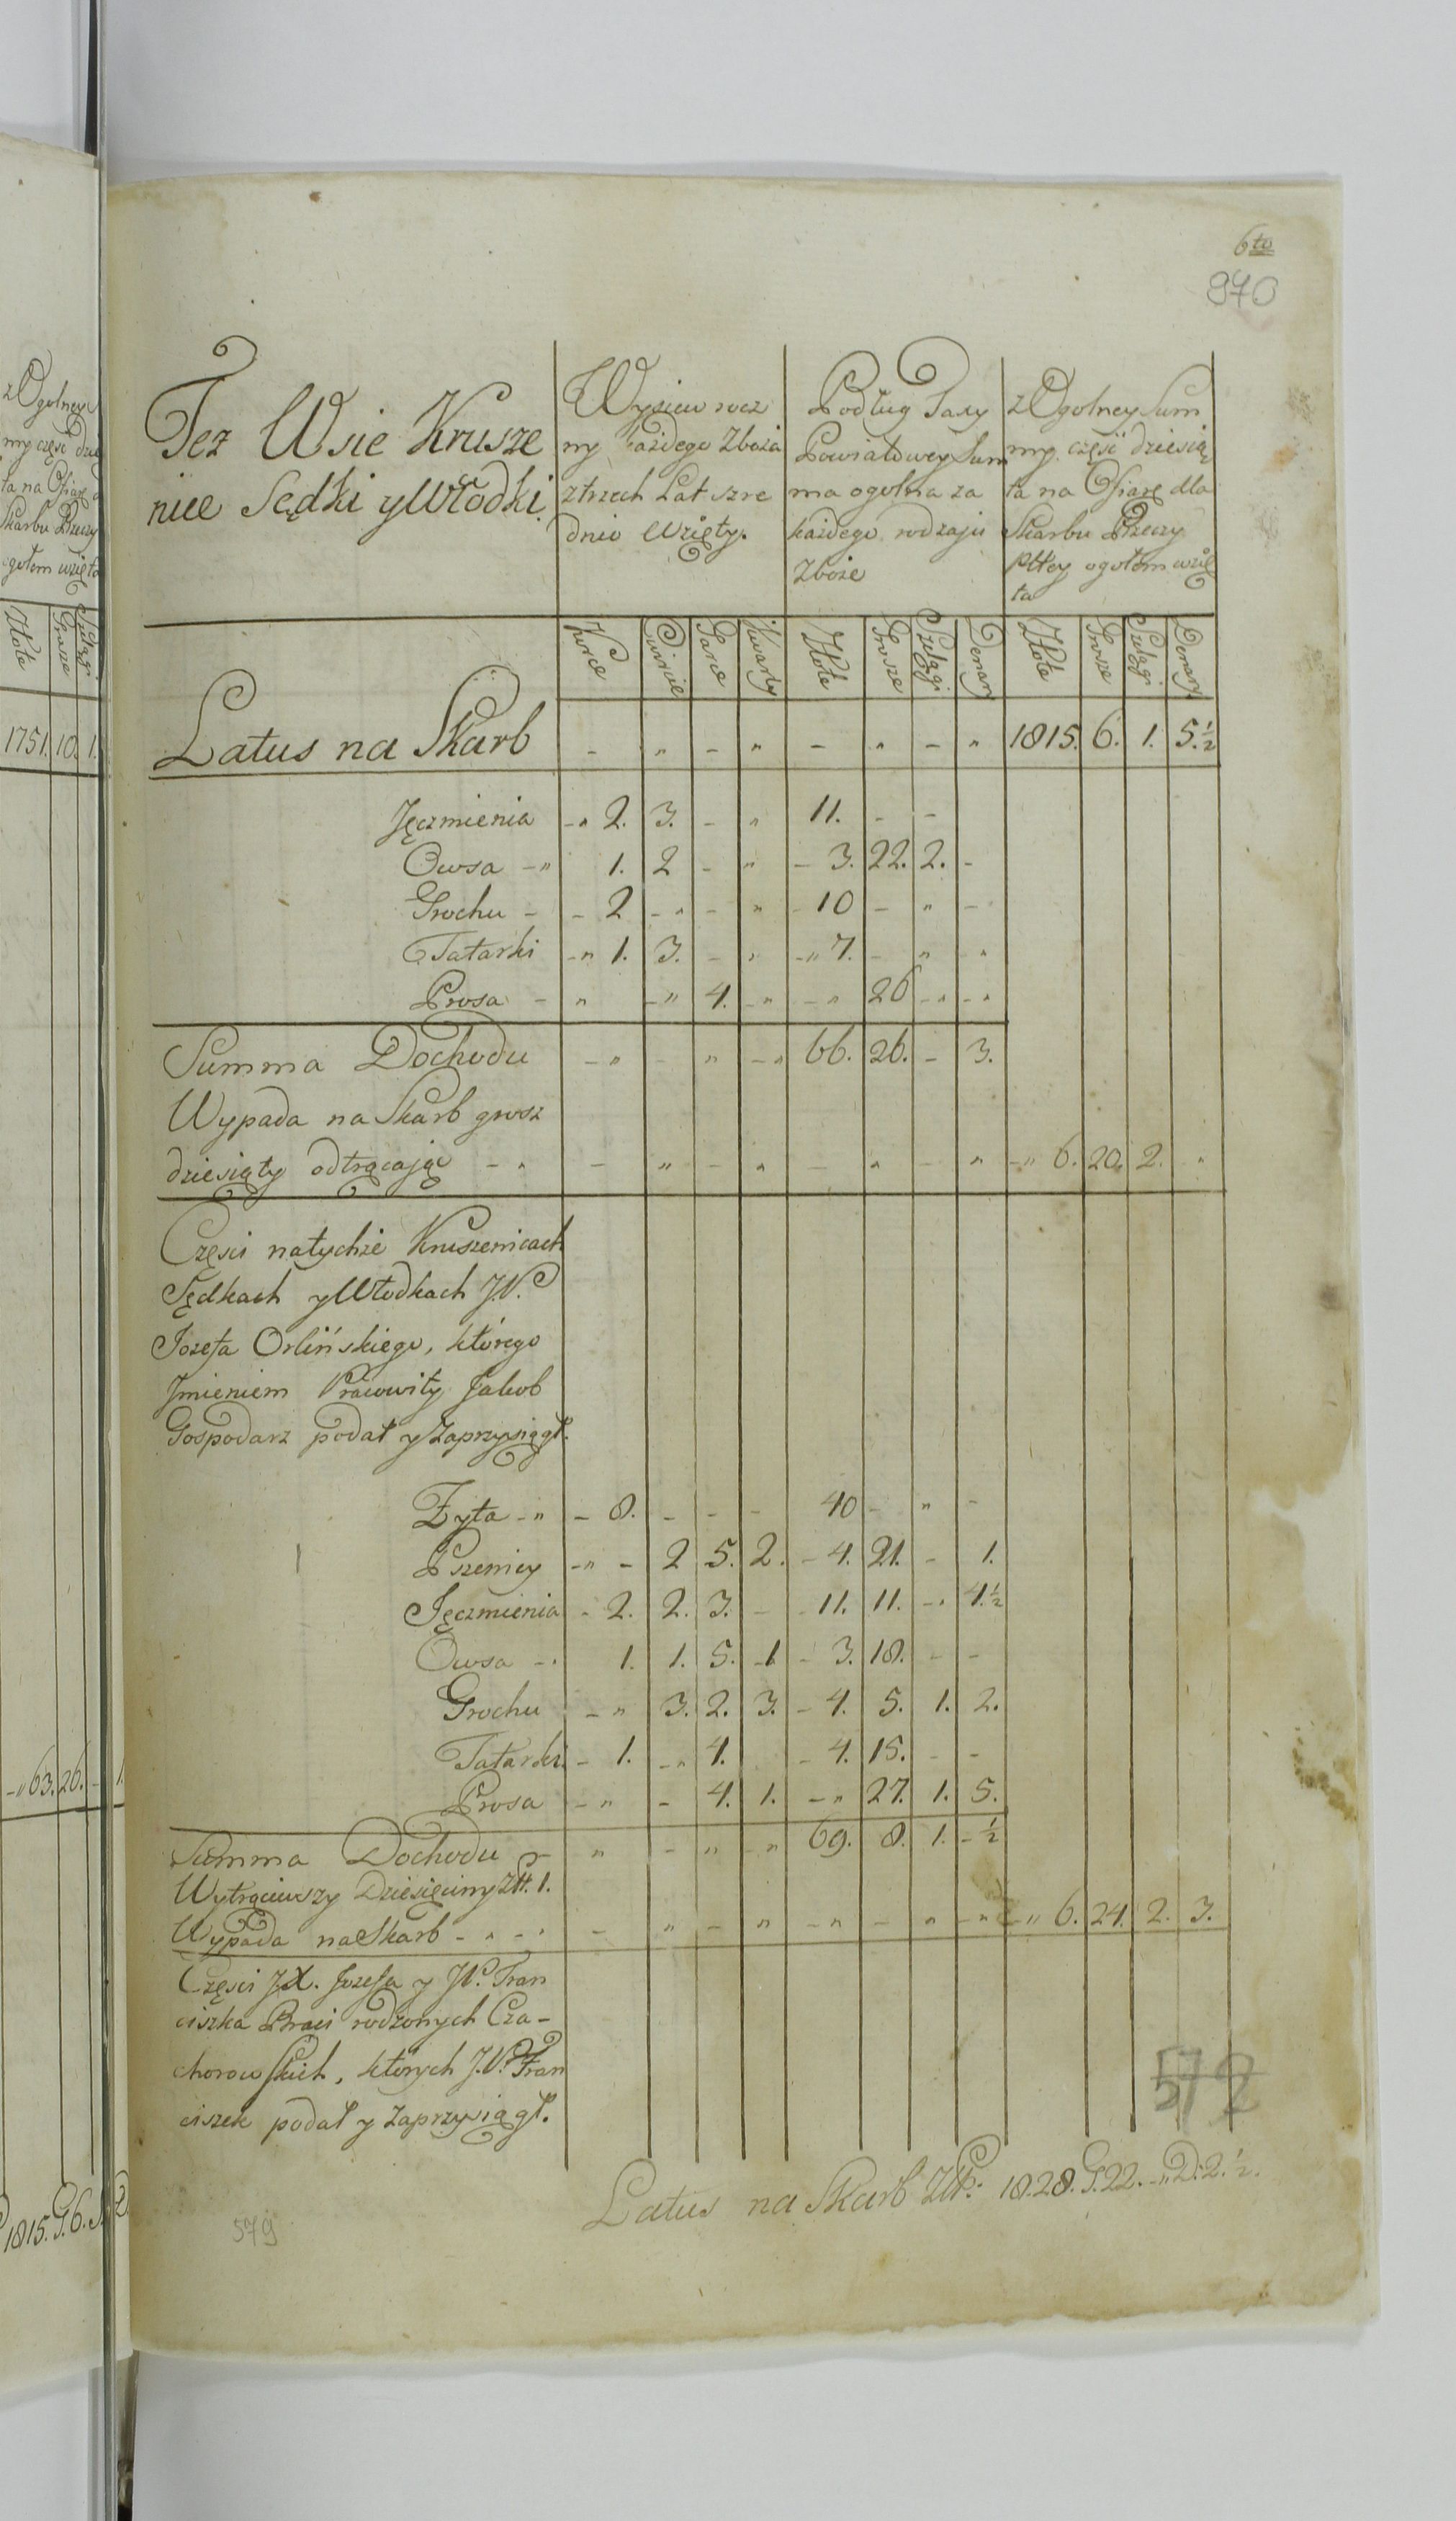 6to
970
Tez Wsie Krusze
nice Sędki y Włodki
Wysiew rocz
ny każdego Zboża
z trzech Lat szre
dnio wzięty.
Podług Taxy
Powiatowey Sum
ma ogolna za
każdego rodzaju
Zboże
z Ogolney Sum
my część dziesią
ta na Ofiarę dla
Skarbu Rzeczy
Pltey ogołem wzię
ta
Korce Cwircie Garce Kwarty Złote Grosze Szelągi Denary Złote Grosze Szelągi Denary
Latus na Skarb - " - " - " - " 1815. 6. 1. 5.½
Jęczmienia -" 2. 3. - " 11. - -
Owsa -" 1. 2 - " - 3. 22. 2. -
Grochu - - 2 -" - " - 10 - " -
Tatarki -" 1. 3. - " -" 7. - " "
Prosa - " -" 4. -" -" 26 -" -"
Summa Dochodu -" - " -" 66. 26. - 3.
Wypada na Skarb grosz
dziesiąty odtrącając -" - " - " - " - " -" 6. 20. 2. "
Części natychże Kruszenicach
Sędkach y Włodkach J.P.
Jozefa Orlińskiego, którego
Jmieniem Pracowity Jakob
Gospodarz podał y zaprzysiągł.
Żyta -" - 8. - - - 40 - " -
Pszenicy -" - 2 5. 2. - 4. 21. - 1.
Jęczmienia - 2. 2. 3. - - 11. 11. -" 4.½
Owsa -" 1. 1. 5. -1 - 3. 18. - -
Grochu -" 3. 2. 3. - 4. 5. 1. 2.
Tatarki - 1. -" 4. - 4. 15. - -
Prosa -" - 4. 1. -" 27. 1. 5.
Summa Dochodu - " - " " 69. 8. 1. -½
Wytrąciwszy Dziesięciny Złł. 1.
Wypada na Skarb -" -" - " - " -" - " -" -" 6. 24. 2. 3.
Części J.X. Jozefa y J.P. Fran
ciszka Braci rodzonych Cza-
chorowskich, których J.P. Fran
ciszek podał y zaprzysiągł.
Latus na Skarb Złł: 1828. G. 22. -" D: 2.½.
572
579
z Ogolney
my część dzie
ta na Ofiarę
Skarbu Rzeczy
ogołem wzięta
Złote Grosze Szelągi
1751. 10. 1.
-" 63. 26. - 1.
1815. G. 6.